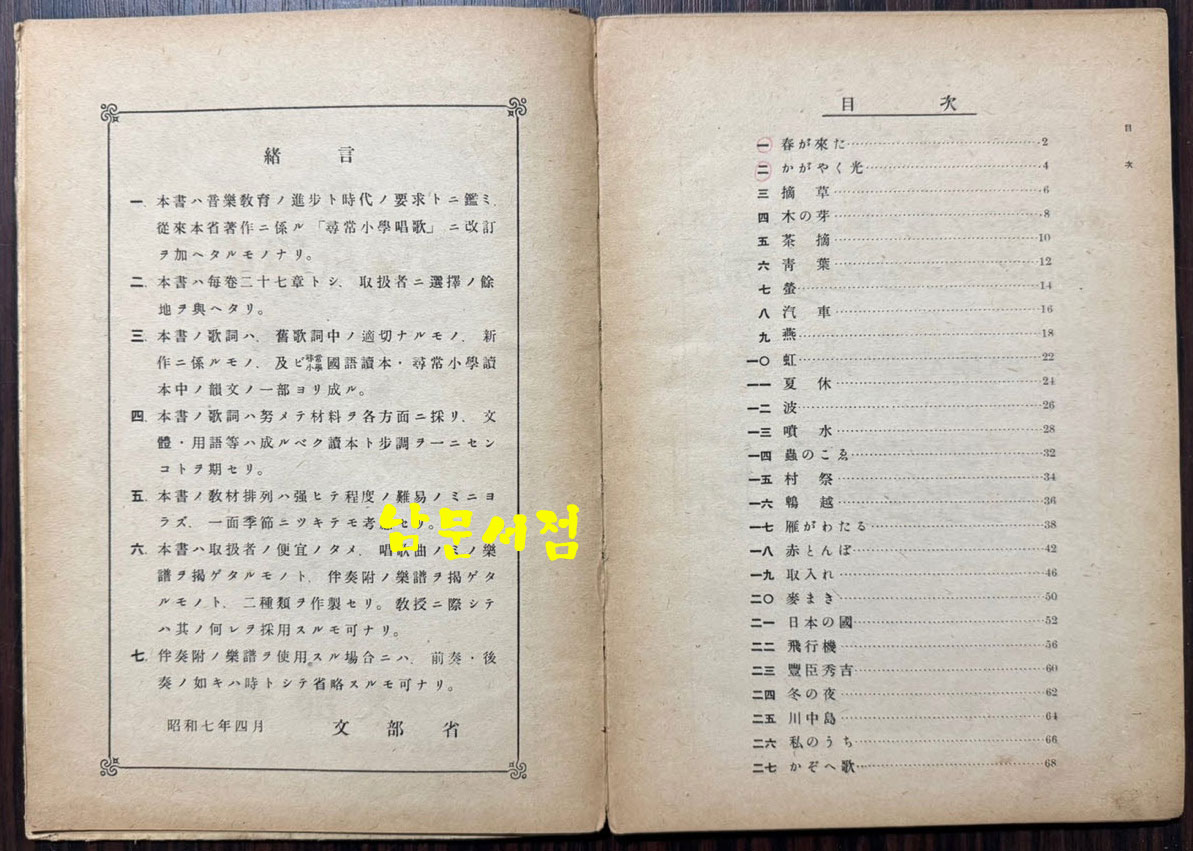 緖言
一. 本書ハ音樂敎育ノ進步ト時代ノ要求トニ鑑ミ、
從來本省著作ニ係ル「尋常小學唱歌」ニ改訂
ヲ加ヘタルモノナリ。
二. 本書ハ每卷二十七章トシ、取扱者ニ選擇ノ餘
地ヲ與ヘタリ。
三. 本書ノ歌詞ハ、舊歌詞中ノ適切ナルモノ、新
作ニ係ルモノ、及ビ尋常小學國語讀本・尋常小學讀
本中ノ韻文ノ一部ヨリ成ル。
四. 本書ノ歌詞ハ努メテ材料ヲ各方面ニ採リ、文
體・用語等ハ成ルベク讀本ト步調ヲ一ニセン
コトヲ期セリ。
五. 本書ノ敎材排列ハ强ヒテ程度ノ難易ノミニヨ
ラズ、一面季節ニツキテモ考セリ。
六. 本書ハ取扱者ノ便宜ノタメ、唱歌曲ノミノ樂
譜ヲ揭ゲタルモノト、伴奏附ノ樂譜ヲ揭ゲタ
ルモノト、二種類ヲ作製セリ。敎授ニ際シテ
ハ其ノ何レヲ採用スルモ可ナリ。
七. 伴奏附ノ樂譜ヲ使用スル場合ニハ、前奏・後
奏ノ如キハ時トシテ省略スルモ可ナリ。
昭和七年四月 文部省
남문서점
目次
目次
一 春が來た 2
二 かがやく光 4
三 摘草 6
四 木の芽 8
五 茶摘 10
六 靑葉 12
七 螢 14
八 汽車 16
九 燕 18
一〇 虹 22
一一 夏休 24
一二 波 26
一三 噴水 28
一四 蟲のこゑ 32
一五 村祭 34
一六 鵯越 36
一七 雁がわたる 38
一八 赤とんぼ 42
一九 取入れ 46
二〇 麥まき 50
二一 日本の國 52
二二 飛行機 56
二三 豐臣秀吉 60
二四 冬の夜 62
二五 川中島 64
二六 私のうち 66
二七 かぞへ歌 68